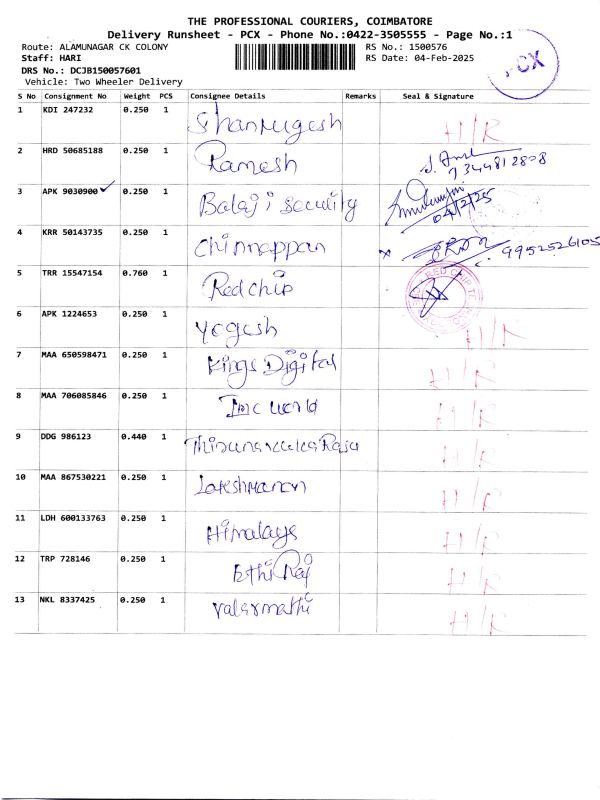 THE PROFESSIONAL COURIERS, COIMBATORE
Delivery Runsheet - PCX - Phone No.:0422-3505555 - Page No.:1
Route: ALAMUNAGAR CK COLONY RS No.: 1500576
Staff: HARI RS Date: 04-Feb-2025
DRS No.: DCJB150057601
Vehicle: Two Wheeler Delivery
PCX
S No Consignment No Weight PCS Consignee Details Remarks Seal & Signature
1 KDI 247232 0.250 1 Shanmugesh H/R
2 HRD 50685188 0.250 1 Ramesh 7344812808
3 APK 9030900 0.250 1 Balaji security 04/2/25
4 KRR 50143735 0.250 1 Chinnappan 9952526105
5 TRR 15547154 0.760 1 Redchip RED CHIP
6 APK 1224653 0.250 1 Yogesh H/R
7 MAA 650598471 0.250 1 Kings Digital H/R
8 MAA 706085846 0.250 1 Imc world H/R
9 DDG 986123 0.440 1 H/R
10 MAA 867530221 0.250 1 Lakshmanan H/R
11 LDH 600133763 0.250 1 Himalaya H/R
12 TRP 728146 0.250 1 Ethi Raj H/R
13 NKL 8337425 0.250 1 Valarmathi H/R